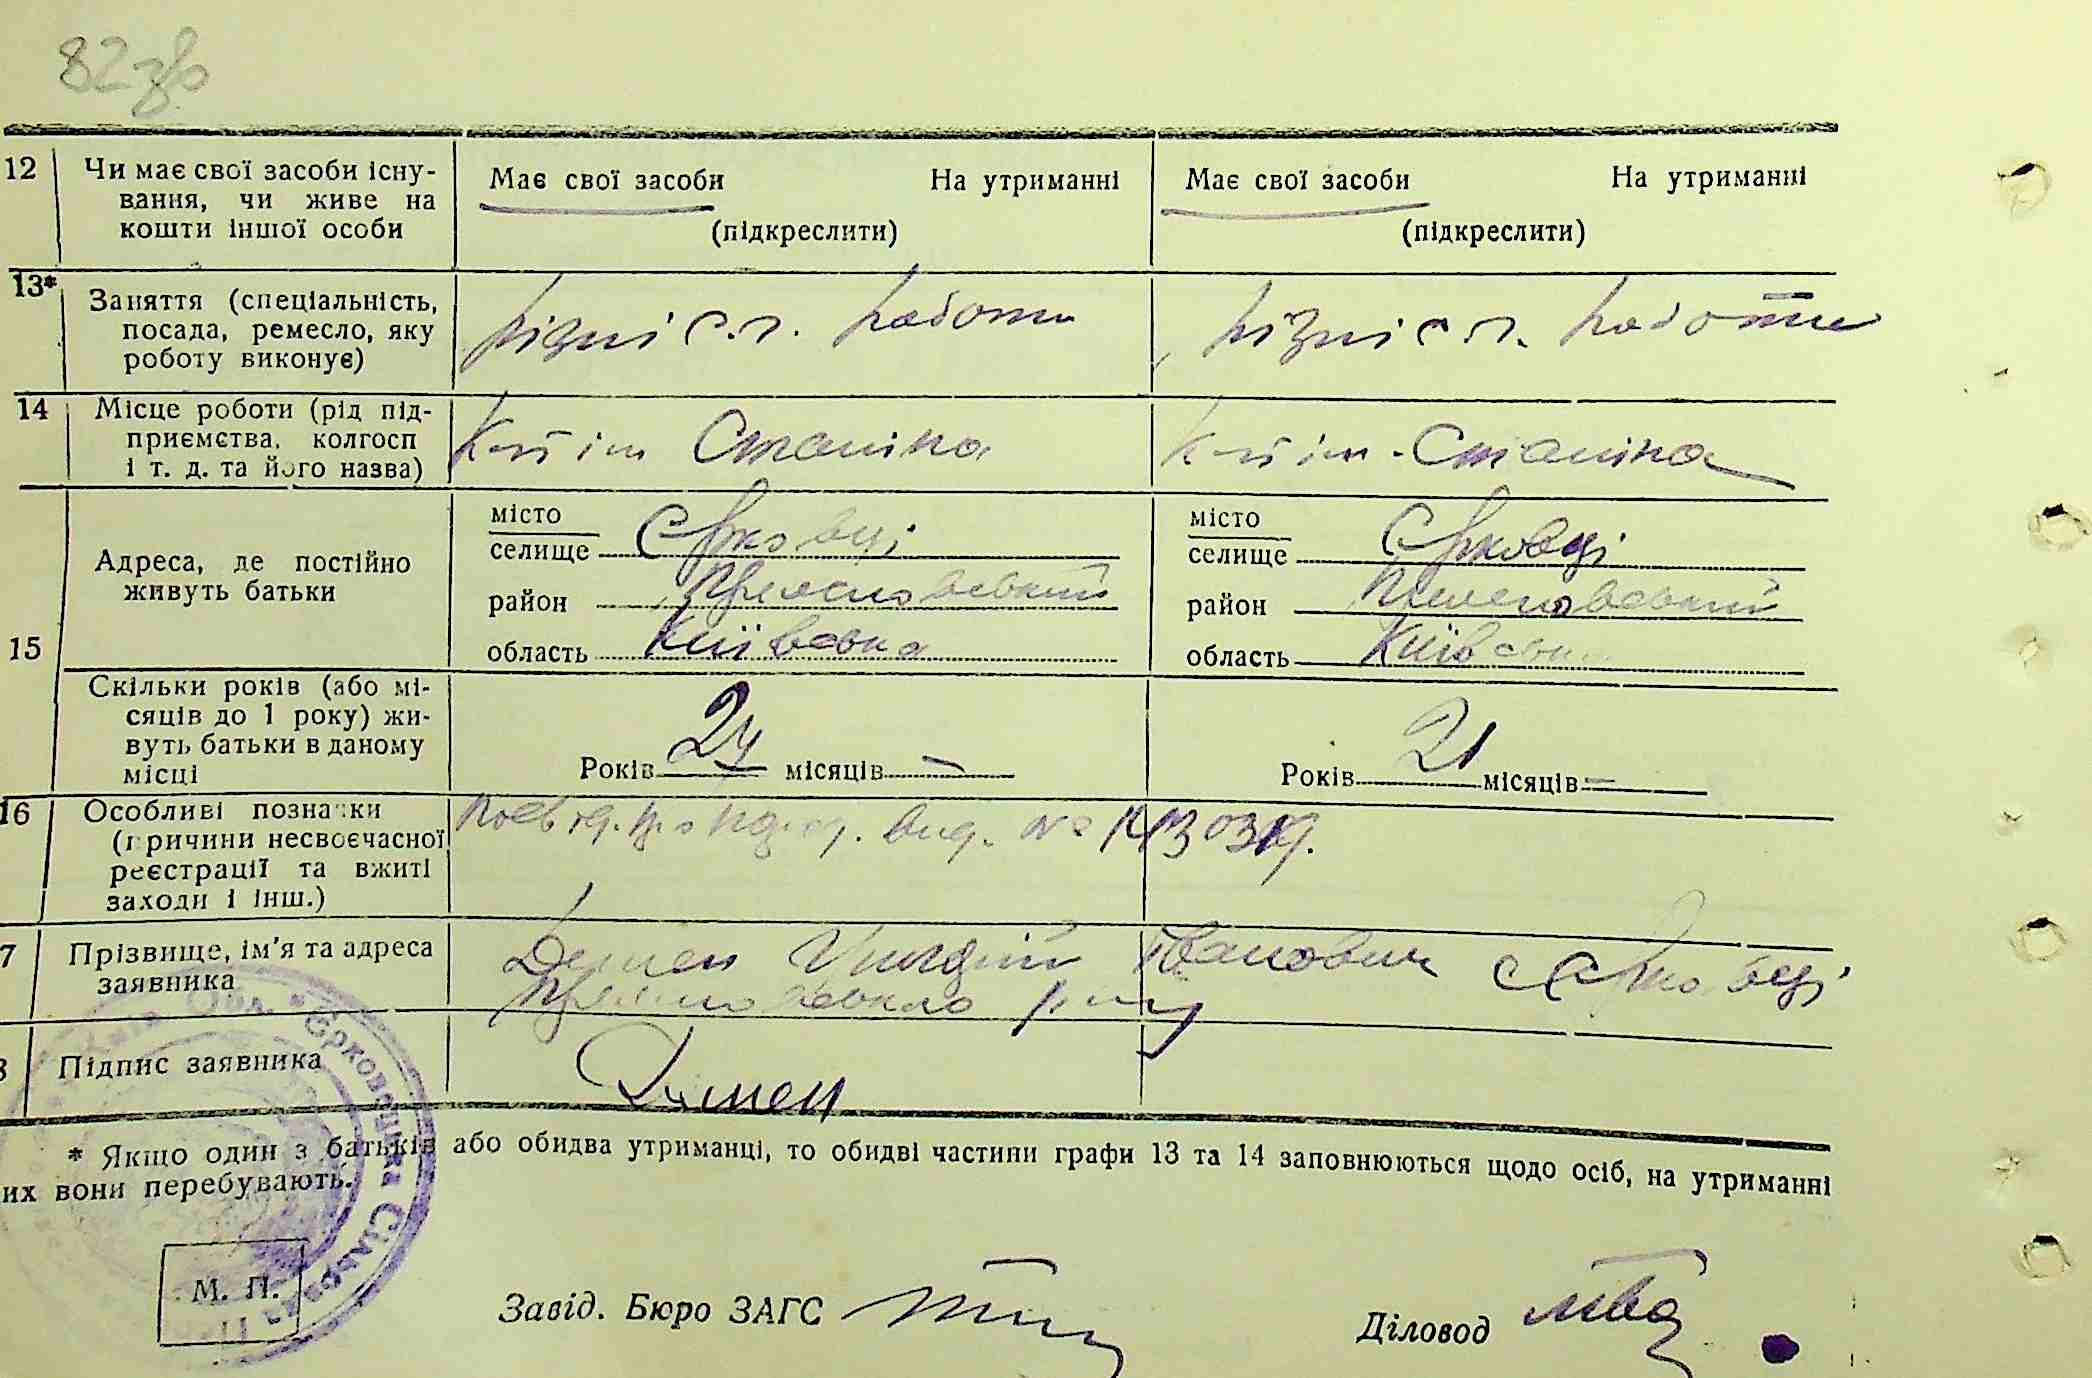 82 зв
12 Чи має свої засоби існу-
вання, чи живе на
кошти іншої особи
Має свої засоби На утриманні
(підкреслити)
Має свої засоби На утриманні
(підкреслити)
13* Заняття (спеціальність,
посада, ремесло, яку
роботу виконує)
різні с.г. работи
різні с.г. работи
14 Місце роботи (рід під-
приємства, колгосп
і т. д. та його назва)
К-п ім Сталіна
К-п ім. Сталіна
15 Адреса, де постійно
живуть батьки
місто
селище Єрковці
район
область Київська
місто
селище Єрковці
район
область Київська
Скільки років (або мі-
сяців до 1 року) жи-
вуть батьки в даному
місці
Років 24 місяців —
Років 21 місяців —
16 Особливі познаки
(причини несвоєчасної
реєстрації та вжиті
заходи і інш.)
вид. №
7 Прізвище, ім'я та адреса
заявника
Іванович с Єрковці
8 Підпис заявника
* Якщо один з батьків або обидва утриманці, то обидві частини графи 13 та 14 заповнюються щодо осіб, на утриманні
их вони перебувають.
Київ Обл. * Єрковецька Сільська
М. П.
Завід. Бюро ЗАГС
Діловод